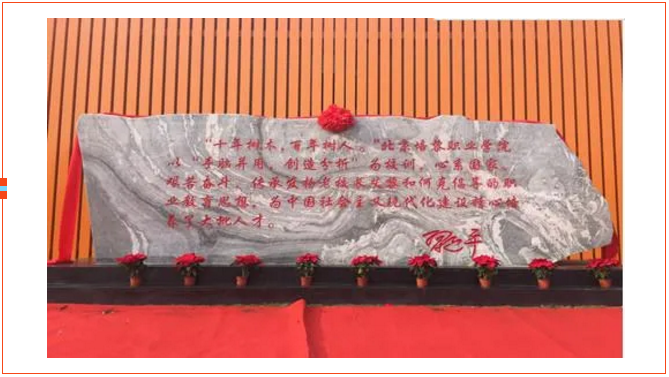 “十年树木，百年树人。”北京培黎职业学院
以“手脑并用，创造分析”为校训，心系国家，
艰苦奋斗，传承发扬老校长艾黎和何克倡导的职
业教育思想，为中国社会主义现代化建设精心培
养了大批人才。